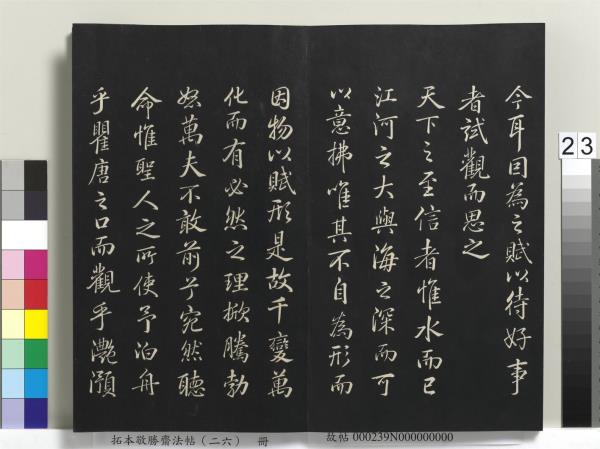 今耳因為之賦以待好事
者試觀而思之
天下之至信者惟水而已
江河之大與海之深而可
以意揣唯其不自為形而
因物以賦形是故千變萬
化而有必然之理掀騰勃
怒萬夫不敢前兮宛然聽
命惟聖人之所使予泊舟
乎瞿唐之口而觀乎灩澦
23
拓本敬勝齋法帖(二六) 冊
故帖 000239N000000000